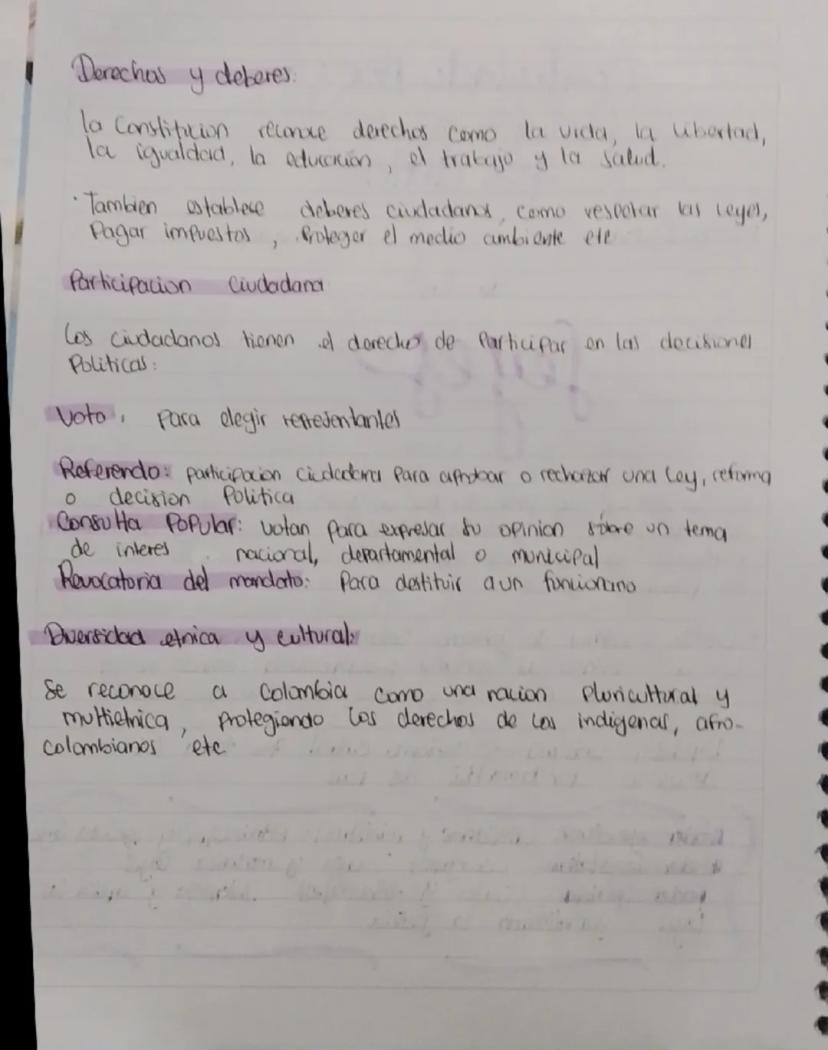 Derechos y deberes:
la Constitucion reconoce derechos como la vida, la libertad,
la igualdad, la educación, el trabajo y la salud.
· Tambien establece deberes ciudadanos, como respetar las leyes,
Pagar impuestos, Proteger el medio ambiente etc
Participacion Ciudadana
Los ciudadanos tienen el derecho de Participar en las decisiones
Politicas:
Voto, Para elegir representantes
Referendo: participacion ciudadana Para aprobar o rechazar una Ley, reforma
o decision Politica
Consulta Popular: votan para expresar su opinion sobre un tema
de interes nacional, departamental o municipal
Revocatoria del mandato: Para destituir a un funcionario
Diversidad etnica y cultural:
Se reconoce a Colombia como una nacion Pluricultural y
multietnica, protegiendo los derechos de los indigenas, afro-
colombianos etc